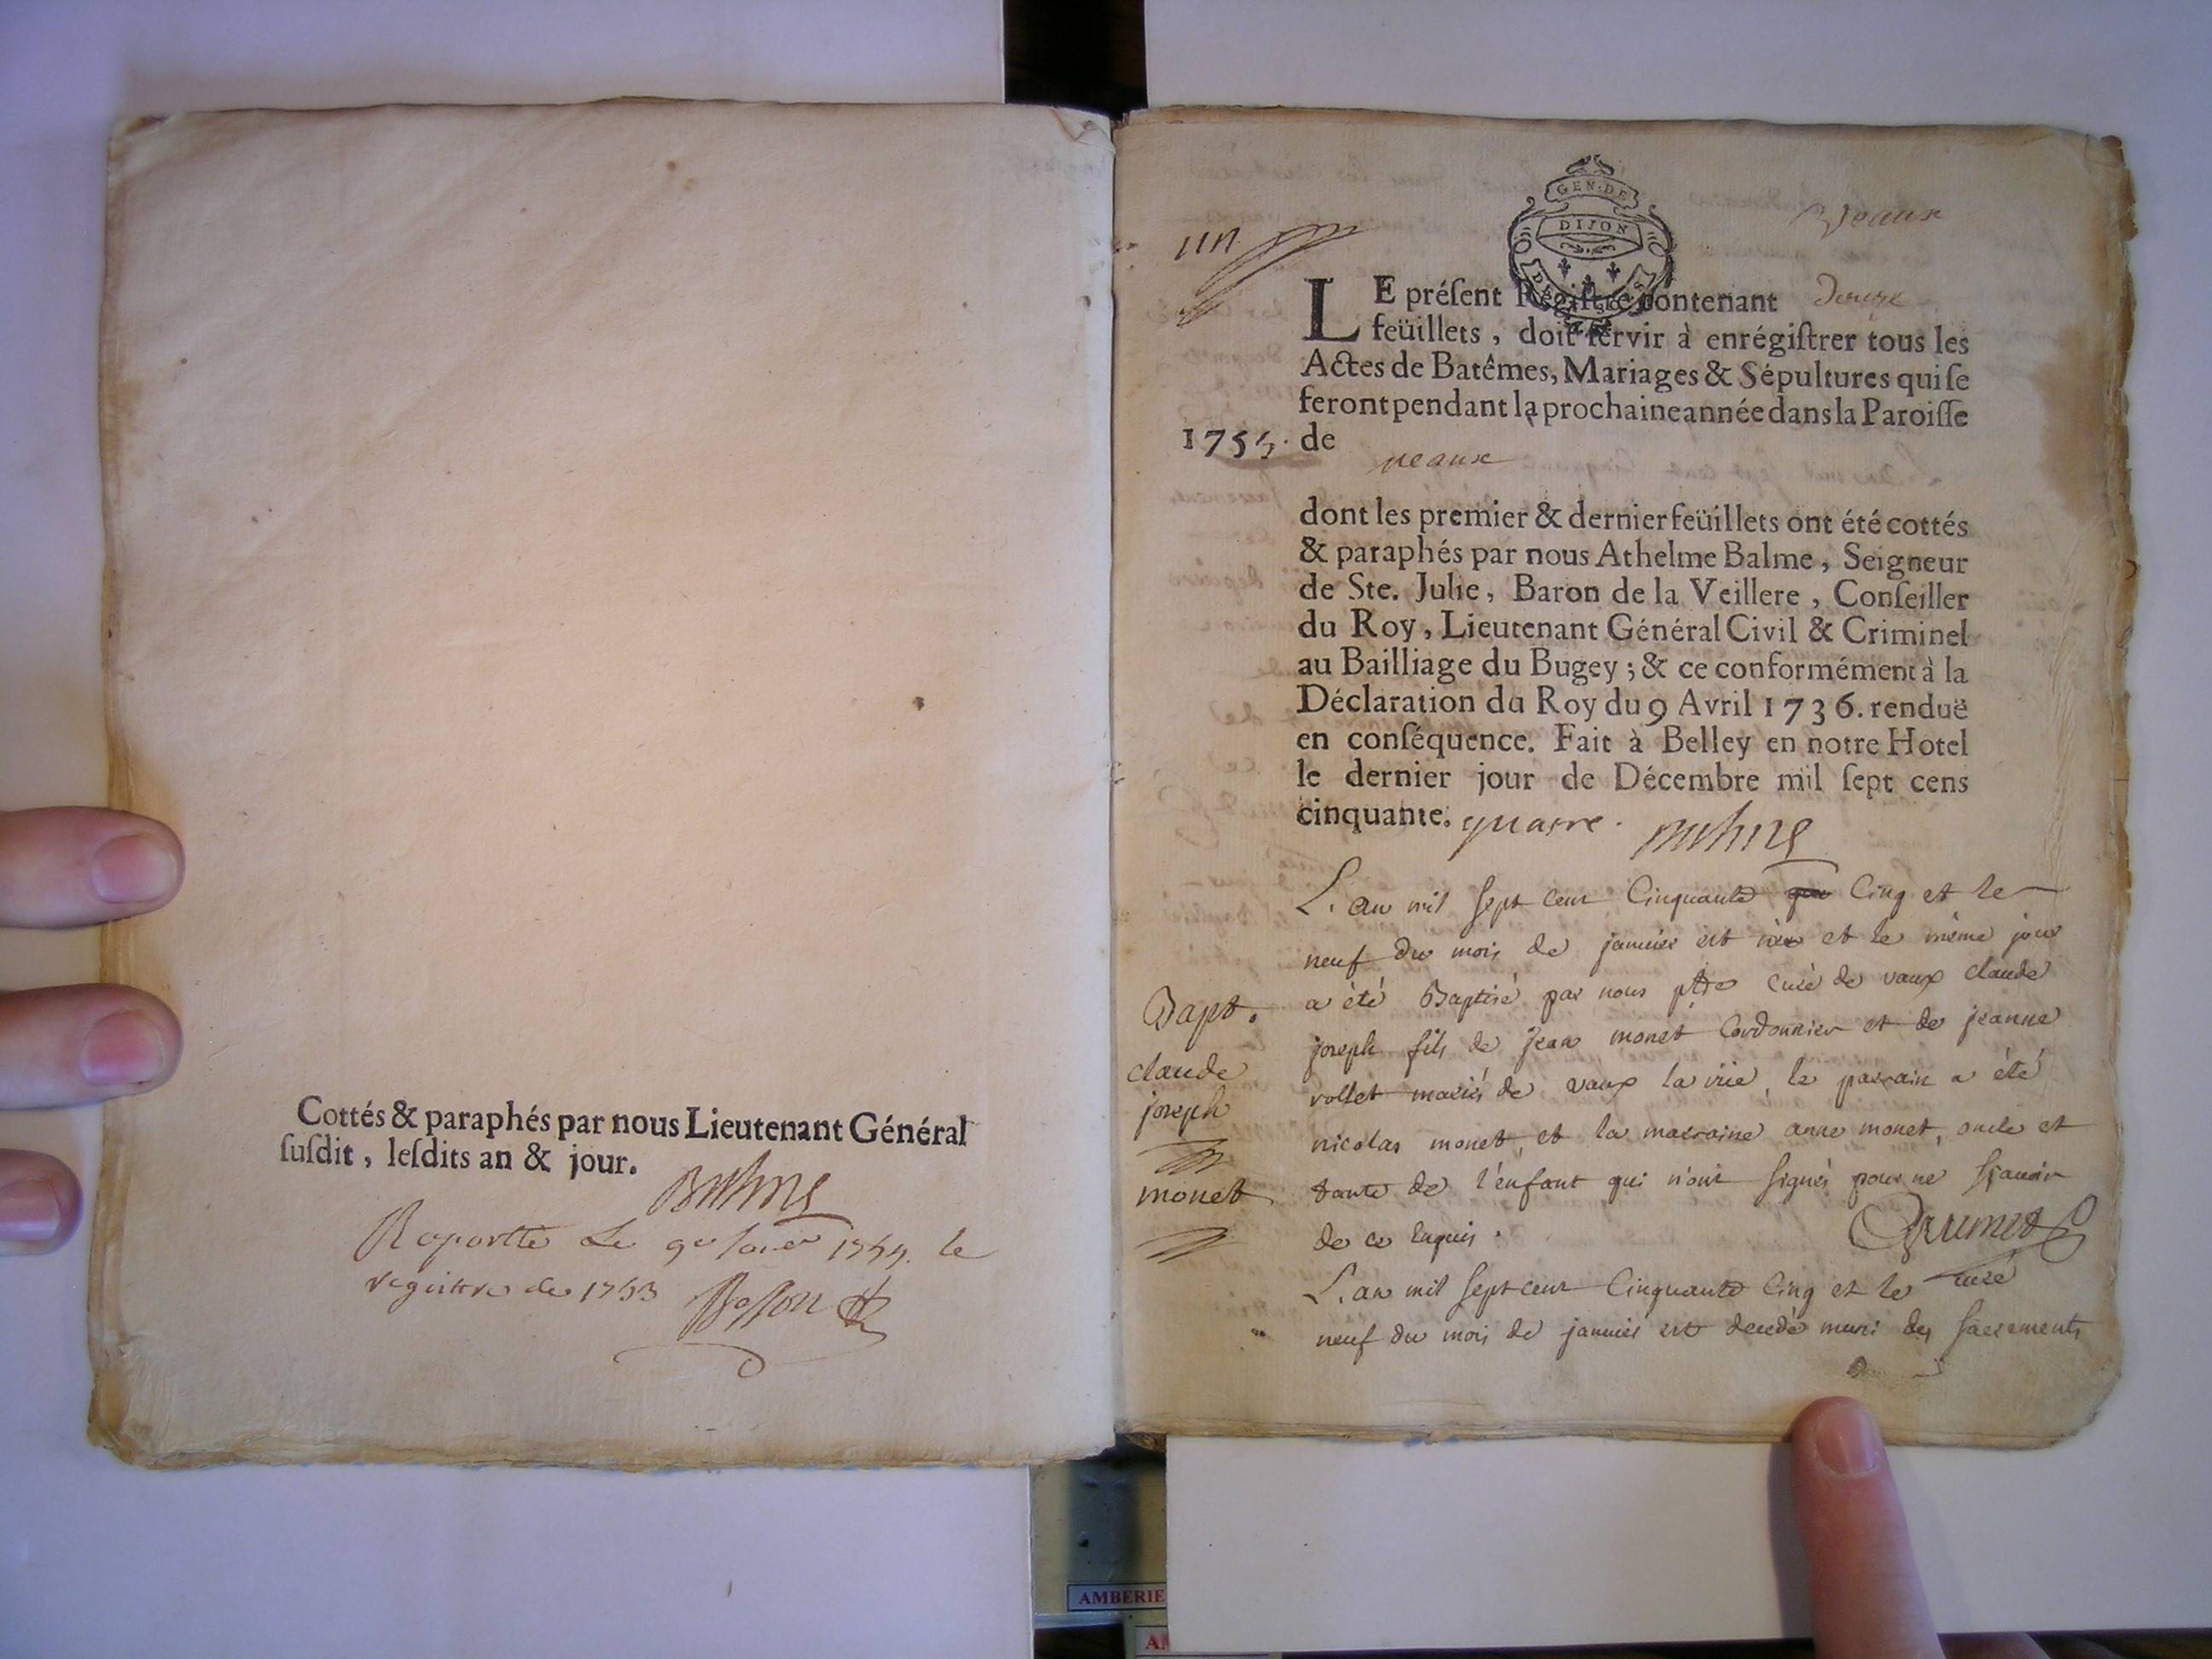 Cottés & paraphés par nous Lieutenant Général
ſuſdit, leſdits an & jour.
Balme
Raportte Le 9e Janer le
registre de 1753
un
GEN. DE
DIJON
Veaux
LE préſent Régiſtre contenant douze
feüillets, doit ſervir à enrégiſtrer tous les
Actes de Batêmes, Mariages & Sépultures qui ſe
feront pendant la prochaine année dans la Paroiſſe
1755. de
veaux
dont les premier & dernier feüillets ont été cottés
& paraphés par nous Athelme Balme, Seigneur
de Ste. Julie, Baron de la Veillere, Conſeiller
du Roy, Lieutenant Général Civil & Criminel
au Bailliage du Bugey; & ce conformément à la
Déclaration du Roy du 9 Avril 1736. renduë
en conſéquence. Fait à Belley en notre Hotel
le dernier jour de Décembre mil ſept cens
cinquante. quatre. Balme
L'an mil sept cent Cinquante Cinq et le
neuf du mois de janvier est née et le même jour
a été Baptisé par nous ptre curé de vaux claude
joseph fils de jean monet Cordonnier et de jeanne
vollet mariés de vaux la vile, le parrain a été
nicolas monet, et la marraine anne monet, oncle et
tante de l'enfant qui n'ont signés pour ne sçavoir
de ce Enquis.
Grumet
curé
Bapt.
claude
joseph
monet
L'an mil sept cent Cinquante Cinq et le
neuf du mois de janvier est decedé muni des sacrements
AMBERIE
AM